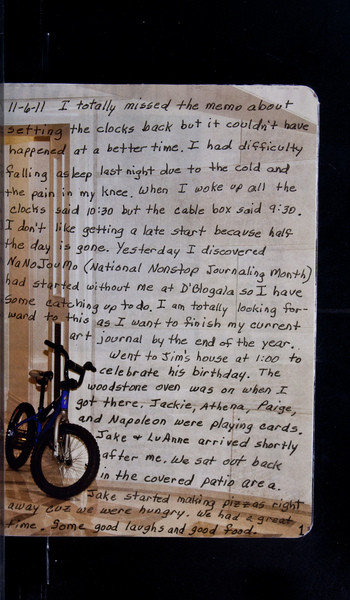 11-6-11 I totally missed the memo about
setting the clocks back but it couldn't have
happened at a better time. I had difficulty
falling asleep last night due to the cold and
the pain in my knee. When I woke up all the
clocks said 10:30 but the cable box said 9:30.
I don't like getting a late start because half
the day is gone. Yesterday I discovered
NaNoJouMo (National Nonstop Journaling Month)
had started without me at D'Blogala so I have
some catching up to do. I am totally looking for-
ward to this as I want to finish my current
art journal by the end of the year.
Went to Jim's house at 1:00 to
celebrate his birthday. The
woodstone oven was on when I
got there. Jackie, Athena, Paige,
and Napoleon were playing cards.
Jake & LuAnne arrived shortly
after me. We sat out back
in the covered patio area.
Jake started making pizzas right
away cuz we were hungry. We had a great
time. Some good laughs and good food.
1